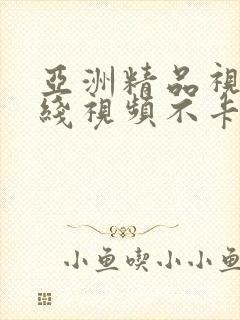 亞洲精品視
綫視頻不卡
小鱼喫小小鱼